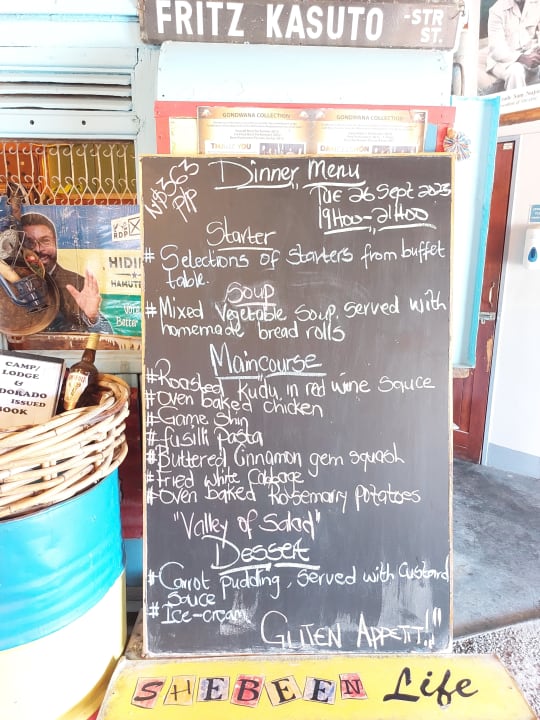 FRITZ KASUTO -STR
ST.
GONDWANA COLLECTION
GONDWANA COLLECTION
THANK YOU
N$363
P/P
Dinner Menu
Tue 26 Sept 2023
19H00-21H00
Starter
# Selections of starters from buffet
table.
Soup
# Mixed Vegetable Soup, served with
homemade bread rolls
Maincourse
# Roasted Kudu in red wine sauce
# Oven baked chicken
# Game Shin
# fusilli Pasta
# Buttered Cinnamon gem squash
# Fried white Cabbage
# Oven baked Rosemarry Potatoes
"Valley of Salad"
Dessert
# Carrot pudding, served with Custard
Sauce
# Ice-cream
GUTEN APPETIT!!"
RDP
HIDI
HAMUTE
Vote
Better
CAMP/
LODGE &
DORADO
ISSUED
BOOK
SHEBEEN Life